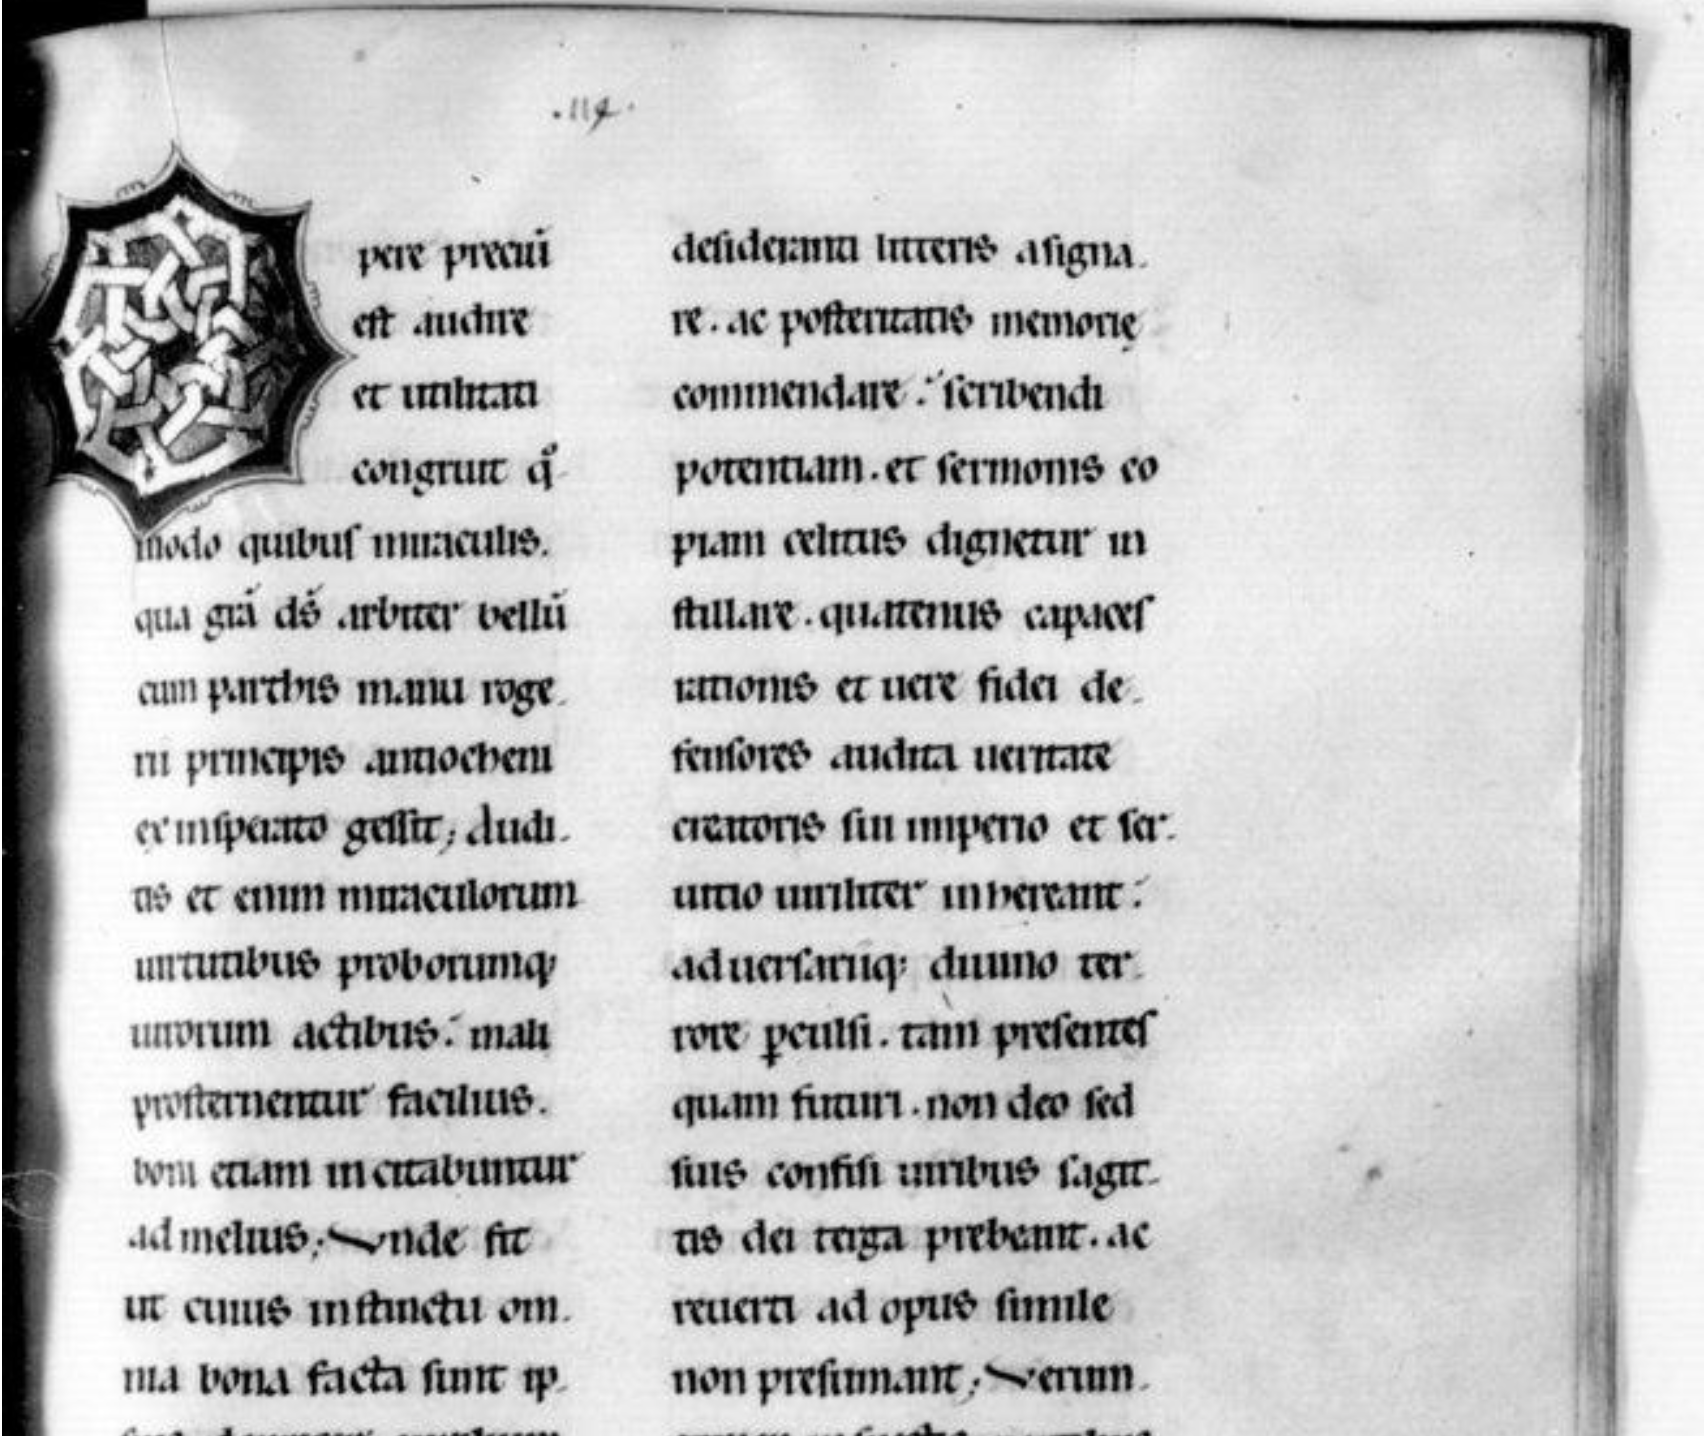 .114.
O
pere preciū
est audire
et utilitati
congruit qͦ
modo quibuſ miraculis.
qua grā ds̄ arbiter bellū
cum parthis manu roge
rii principis antiocheni
ex insperato gessit; Audi
tis et enim miraculorum
uirtutibus proborumq;
uirorum actibus: mali
prosternentur facilius.
boni etiam incitabuntur
ad melius; Vnde fit
ut cuius instinctu om
nia bona facta sunt ip
desideranti litteris asigna
re. ac posteritatis memorię
commendare: scribendi
potentiam. et sermonis co
piam celitus dignetur in
stillare. quatenus capaceſ
rationis et uere fidei de
fensores audita ueritate
creatoris sui imperio et ser
uitio uiriliter inhereant:
aduersariiq; diuino ter
rore ꝑculsi. tam presenteſ
quam futuri. non deo sed
suis confisi uiribus sagit
tis dei terga prebeant. ac
reuerti ad opus simile
non presumant; Verum